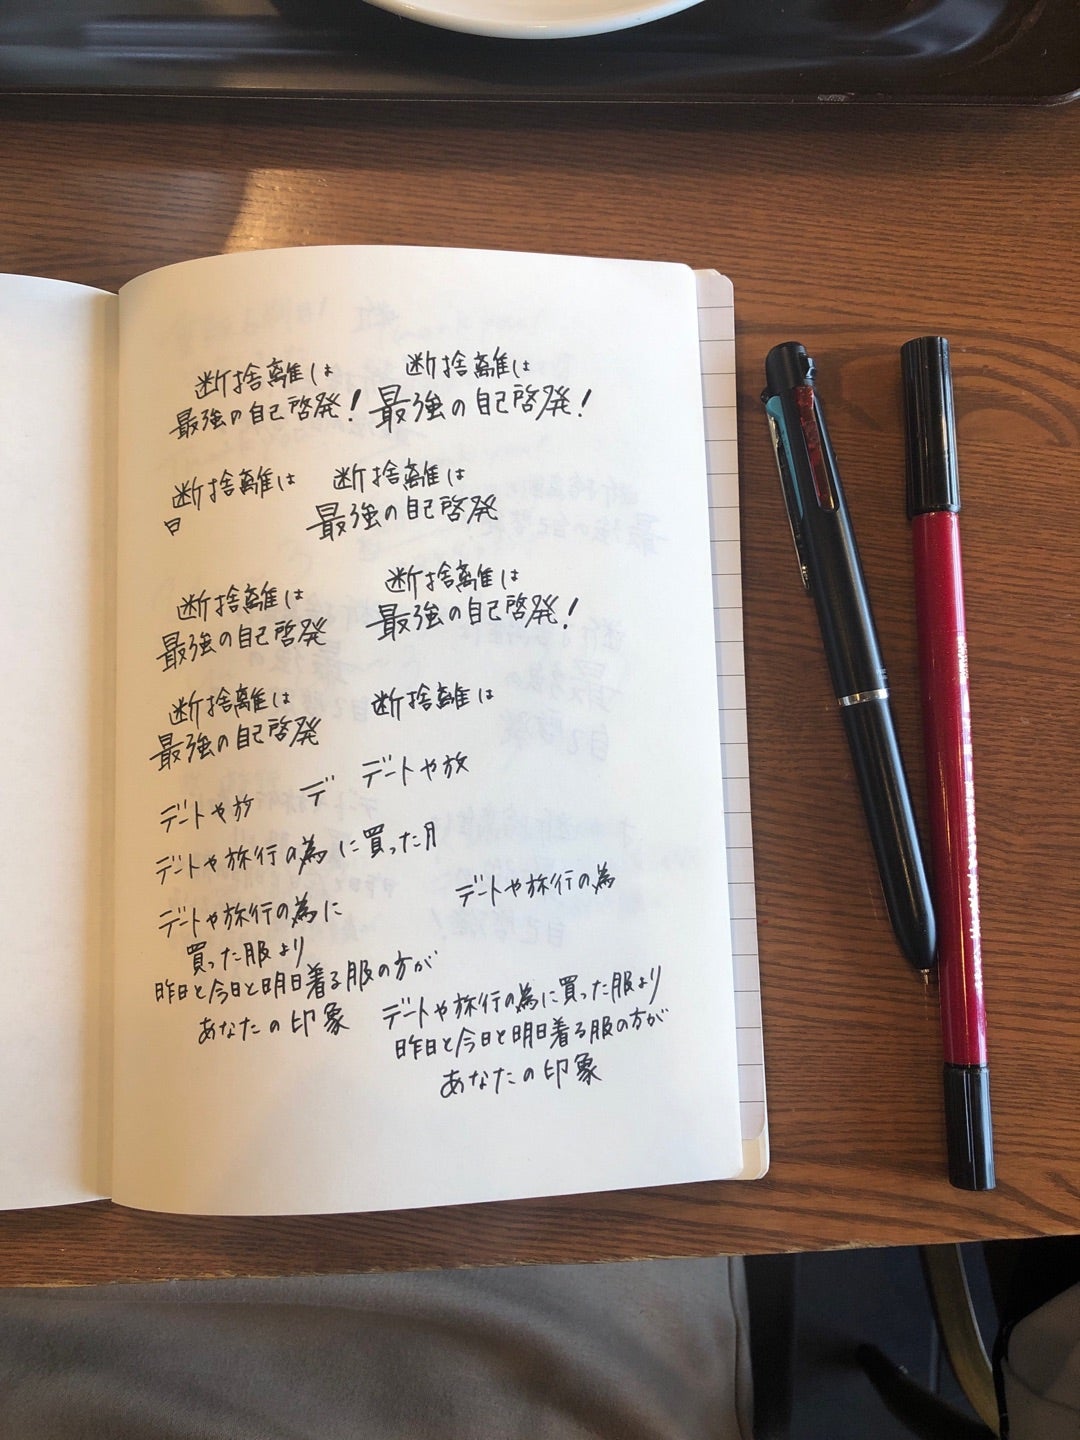 断捨離は
最強の自己啓発!
断捨離は
最強の自己啓発!
断捨離は
日
断捨離は
最強の自己啓発
断捨離は
最強の自己啓発
断捨離は
最強の自己啓発!
断捨離は
最強の自己啓発
断捨離は
デートや放
デ
デートや放
デートや旅行の為に買った月
デートや旅行の為に
買った服より
昨日と今日と明日着る服の方が
あなたの印象
デートや旅行の為
デートや旅行の為に買った服より
昨日と今日と明日着る服の方が
あなたの印象